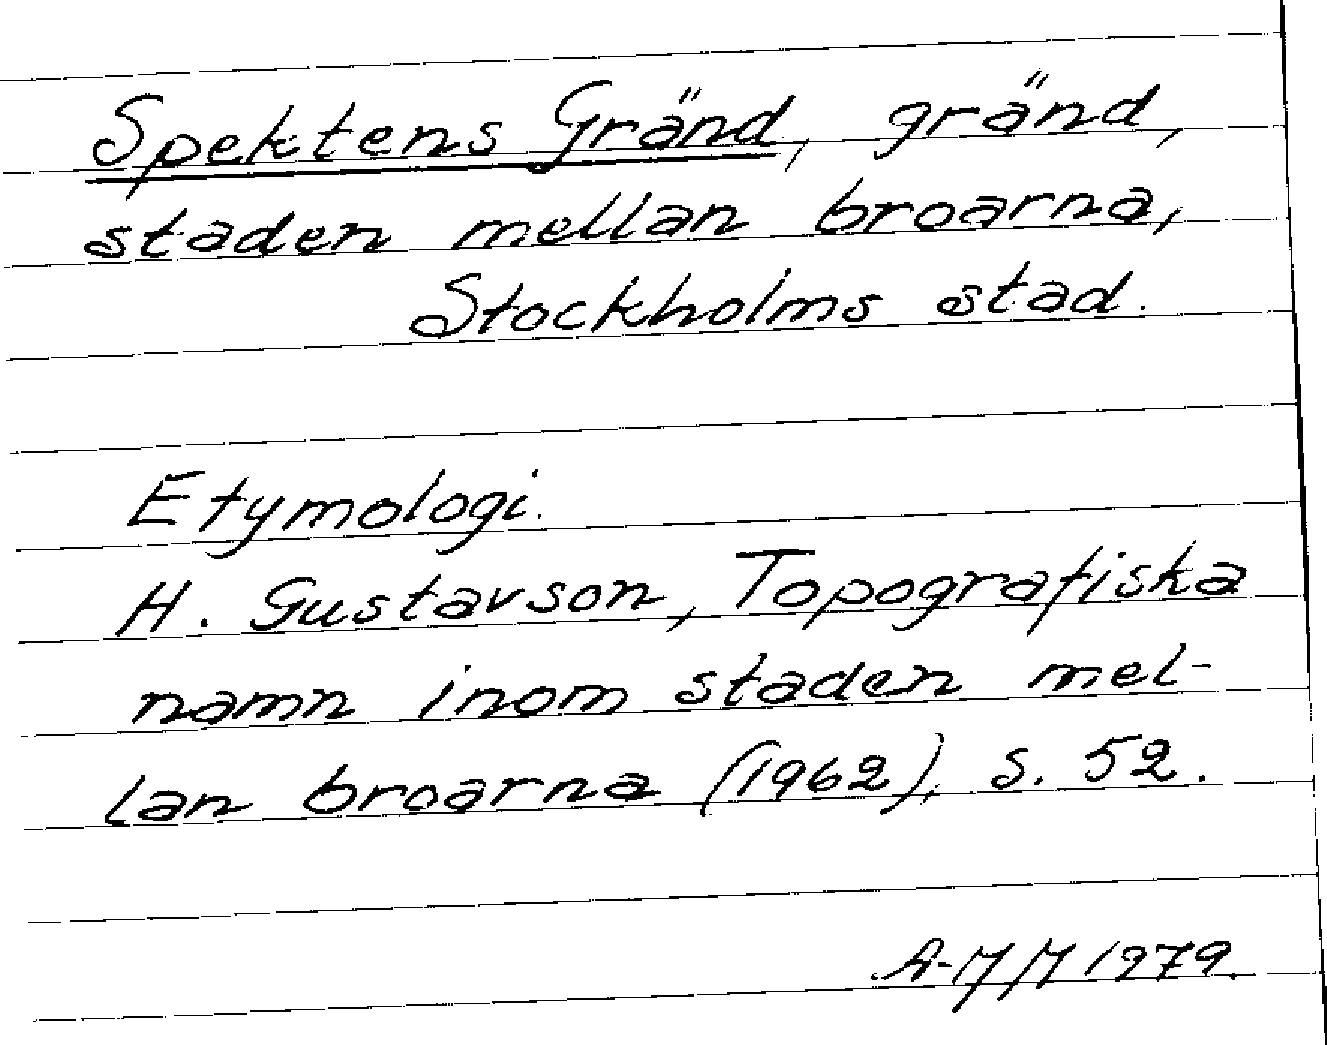 Spektens Gränd, gränd,
staden mellan broarna,
Stockholms stad.
Etymologi.
H. Gustavson, Topografiska
namn inom staden mel-
lan broarna (1962), s. 52.
1979.